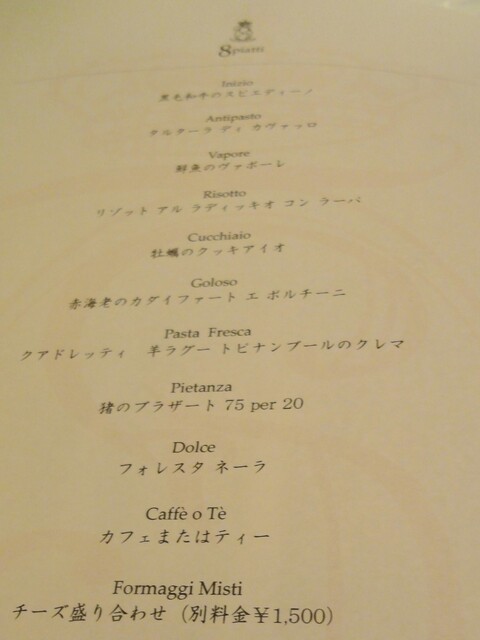 8piatti
Inizio
黒毛和牛のスピエディーノ
Antipasto
タルターラ ディ カヴァッロ
Vapore
鮮魚のヴァポーレ
Risotto
リゾット アル ラディッキオ コン ラーパ
Cucchiaio
牡蠣のクッキアイオ
Goloso
赤海老のカダイファート エ ポルチーニ
Pasta Fresca
クアドレッティ 羊ラグー トピナンブールのクレマ
Pietanza
猪のブラザート 75 per 20
Dolce
フォレスタ ネーラ
Caffè o Tè
カフェまたはティー
Formaggi Misti
チーズ盛り合わせ（別料金￥1,500）